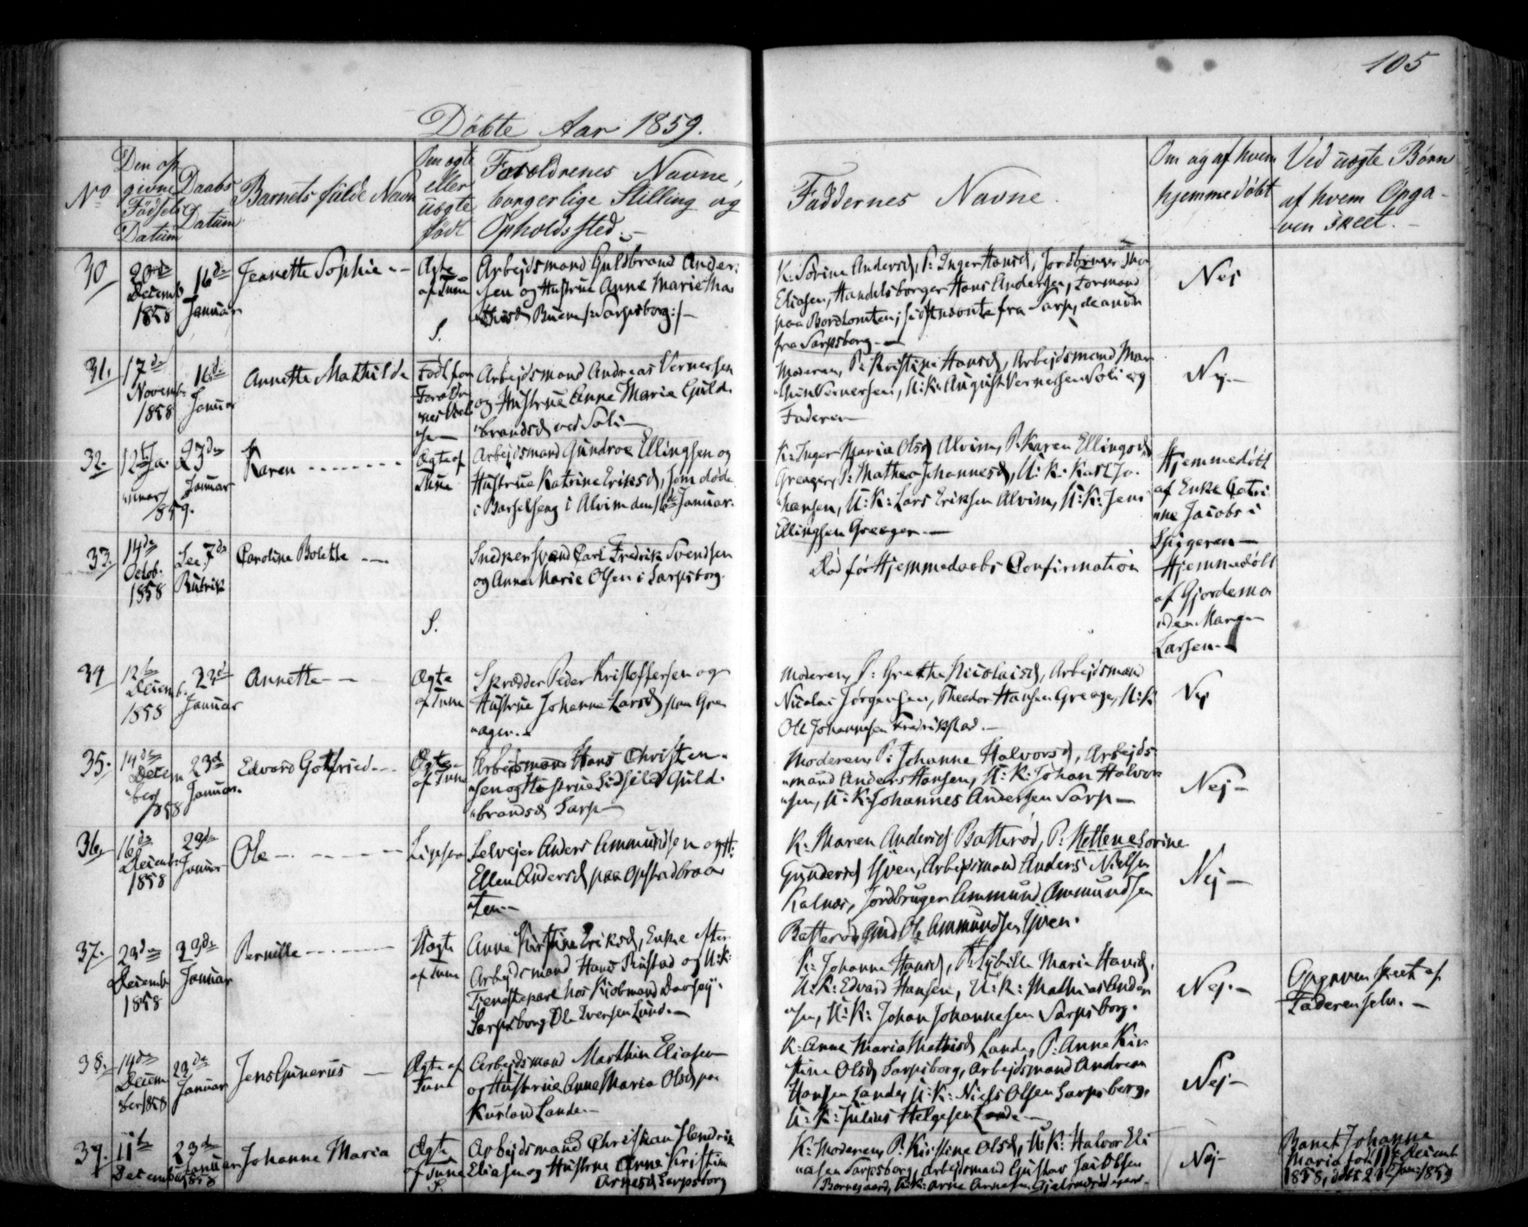 105
Døbte Aar 1859.
No
Den op
givne
Fødsels
Datum
Daabs
Datum
Barnets fulde Navn
Om ægte
eller
uægte
født
Forældrenes Navne,
borgerlige Stilling og
Opholdssted.
Faddernes Navne.
Om og af hvem
hjemmedøbt
Ved uægte Børn
af hvem Opga-
ven skeet.
30
23de
Decemb.
1858
16de
Januar
Jeanette Sophie
Ægte
af Tune
S.
Arbejdsmand Guldbrand Ander-
sen og Hustrue Anne Marie Ma-
Sarpsborg
K: Sorine Andersd, P: Inger Hansd, Jordbruger
Eliasen, Handelsborger Hans Andersen, Formand
paa Borchtomten, fra Sarp, de andre
fra Sarpsborg.
Nej
31.
17de
Novemb.
1858
16de
Januar
Annette Mathilde
Født før
Foræl-
Arbejdsmand Andreas Vernersen
og Hustrue Anne Maria Guld-
brandsd ved Soli
Moderen, P: Kristine Hansd, Arbejdsmand Mar-
Vernersen, U: K: August Vernersen Soli og
Faderen
Nej.
32.
12te Ja-
nuar
1859.
23de
Januar
Karen
Ægte af
Tune
Arbejdsmand Gundroe Ellingsen og
Hustrue Katrine Eriksd, som døde
i Barselseng i Alvim den Januar.
K: Inger Maria Olsd Alvim, P: Karen Ellingsd
Greager, P: Mathea Johannesd, U: K: Karl Jo-
hansen, U: K: Lars Eriksen Alvim, U: K: Jens
Ellingsen Greager.
Hjemmedøbt
af Enke
Jacobs i
Spigeren
33.
14de
Octob.
1858
See 7de
Rubrik
Caroline Bolette
S.
Snedkersvend Carl Fredrik Svendsen
og Anna Marie Olsen i Sarpsborg.
Død før Hjemmedaabs Confirmation
Hjemmedøbt
af Gjordemo-
deren Maren
Larsen.
34
12te
Decemb.
1858
23de
Januar
Annette
Ægte
af Tune
Skrædder Peder Kristoffersen og
Hustrue Johanne Larsd paa Grea-
ager.
Moderen, P: Grethe Nicolaisd, Arbejdsmand
Nicolai Jørgensen, Theodor Hansen Greager, U: K:
Ole Johannesen Fredrikstad.
Nej
35.
14de
Decem-
ber
1858
23de
Januar.
Edvard Gotfried
Ægte
af Tune
Arbejdsmand Hans Christen-
sen og Hustrue Sidsel Guld-
brandsd Sarp
Moderen, P: Johanne Halvorsd, Arbejds-
mand Anders Hansen, U: K: Johan Halvor-
sen, U: K: Johannes Andersen Sarp
Nej
36.
16de
Decemb.
1858
23de
Januar
Ole
Selvejer Anders Ammundsen og H:
Ellen Andersd paa Opstadbraa-
ten
K: Maren Andersd Batterød, P: Hellene Sorine
Gundersd Yven, Arbejdsmand Anders Nielsen
Kalnæs, Jordbruger Ammund Ammundsen
Batterød, Gmd Ole Ammundsen Yven.
Nej
37.
23de
Decemb.
1858
23de
Januar
Pernille
Uægte
af Tune
Anne Kirstine Eriksd, Enke efter
Arbejdsmand Hans Rustad og U: K:
Tjenestekarl hos Kjøbmand
Sarpsborg Ole Iversen Lund.
P: Johanne Hansd, P: Sybille Maria Hansd,
U: K: Edvard Hansen, U: K: Mathias Ander-
sen, U: K: Johan Johannesen Sarpsborg.
Nej.
Opgaven skeet af
Faderen selv.
38.
14de
Decem-
ber 1858
23de
Januar
Jens Gunerius
Ægte af
Tune
Arbejdsmand Marthin Eliasen
og Hustrue Anne Maria Olsd paa
Kurland Lande.
K: Anne Maria Mathisd Lande, P: Anne Kir-
stine Olsd Sarpsborg, Arbejdsmand Andreas
Hansen Lande, U: K: Niels Olsen Sarpsborg,
U: K: Julius Helgesen Lande.
Nej
39.
11te
December
1858
23de
Januar
Johanne Maria
Ægte
af Tune
S.
Arbejdsmand Christian Hendrik
Eliasen og Hustrue Anne Kristine
Arnesd Sarpsborg
K: Moderen, P: Kirstine Olsd, U: K: Halvor Eli-
asen Sarpsborg, Arbejdsmand Gustav Jacobsen
Borregaard, U: K: Arne Arnesen
Nej
Barnet Johanne
Maria født 11te Decemb.
1858, døbt 23de Jan: 1859